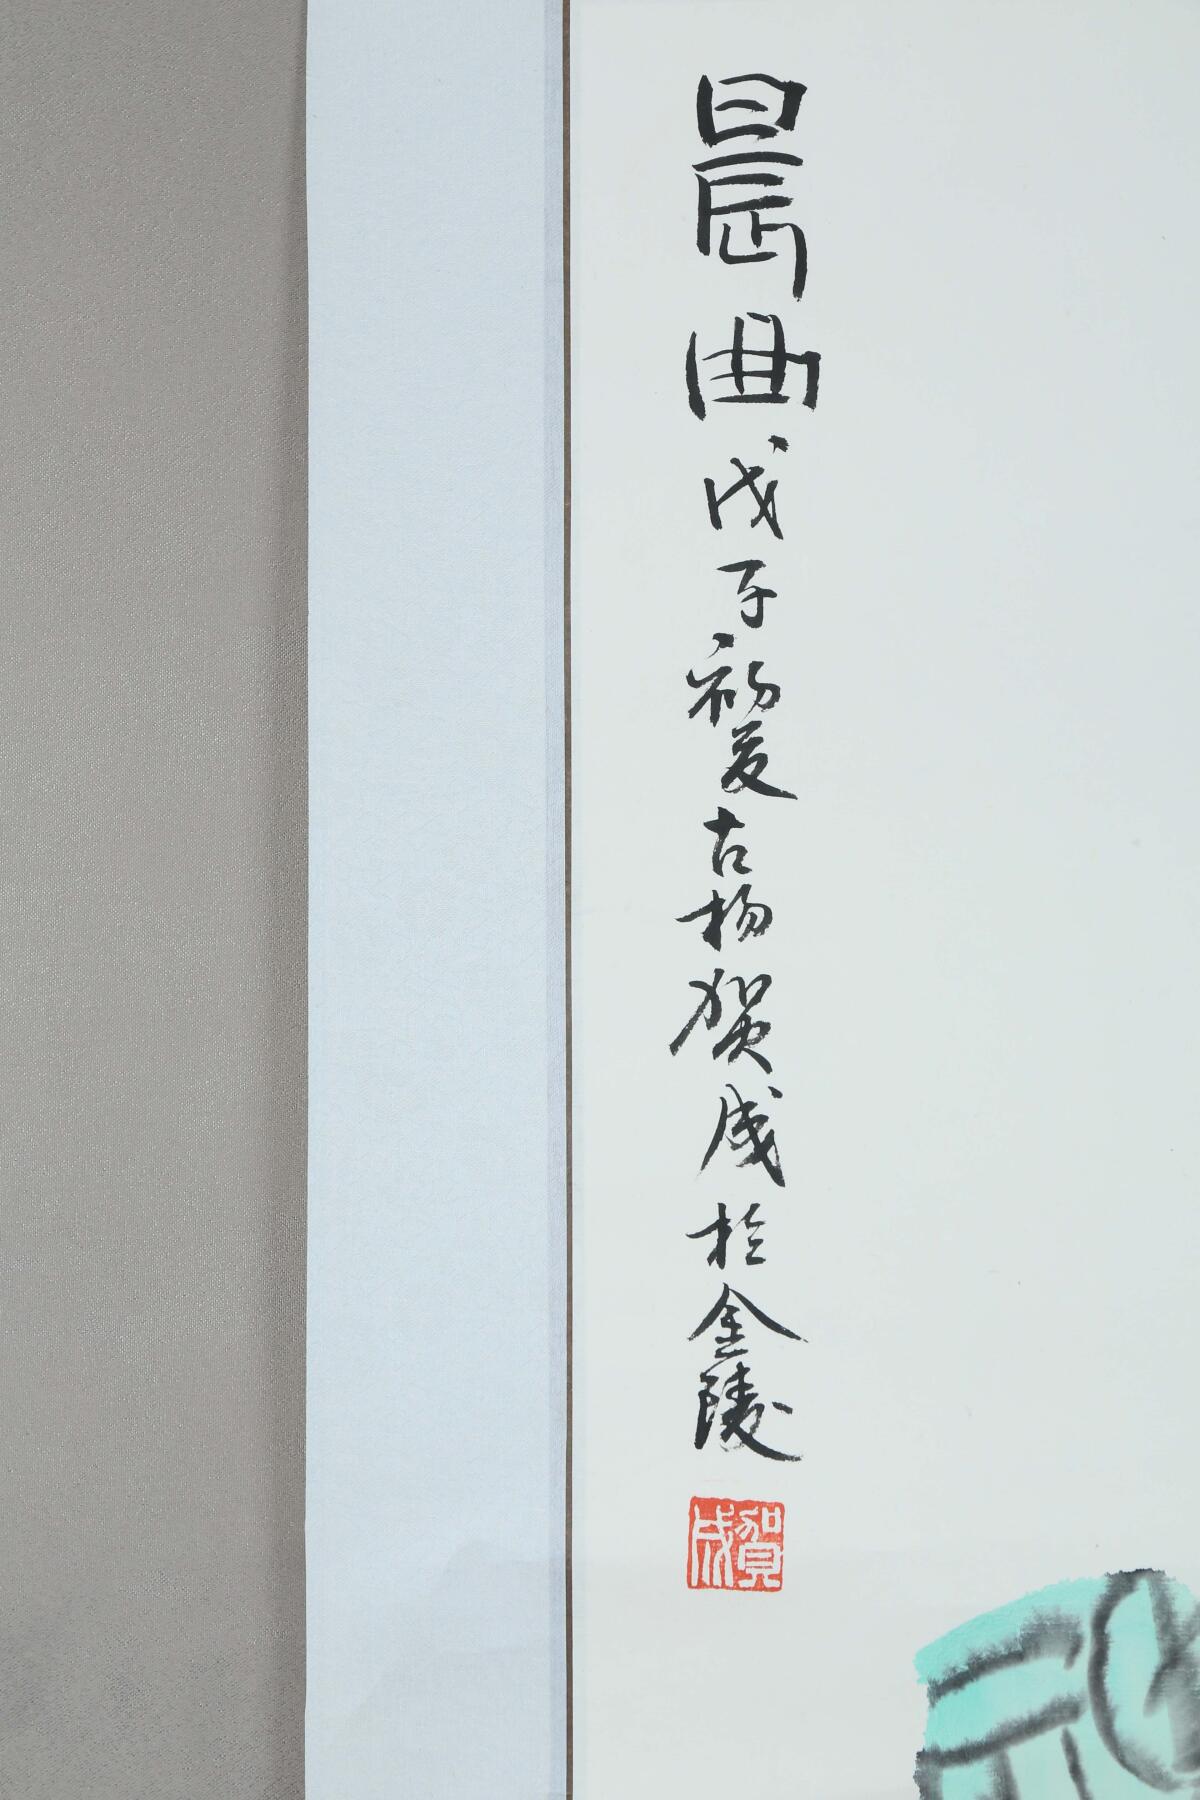 晨曲戊子初夏古杨贺成於金陵
賀成